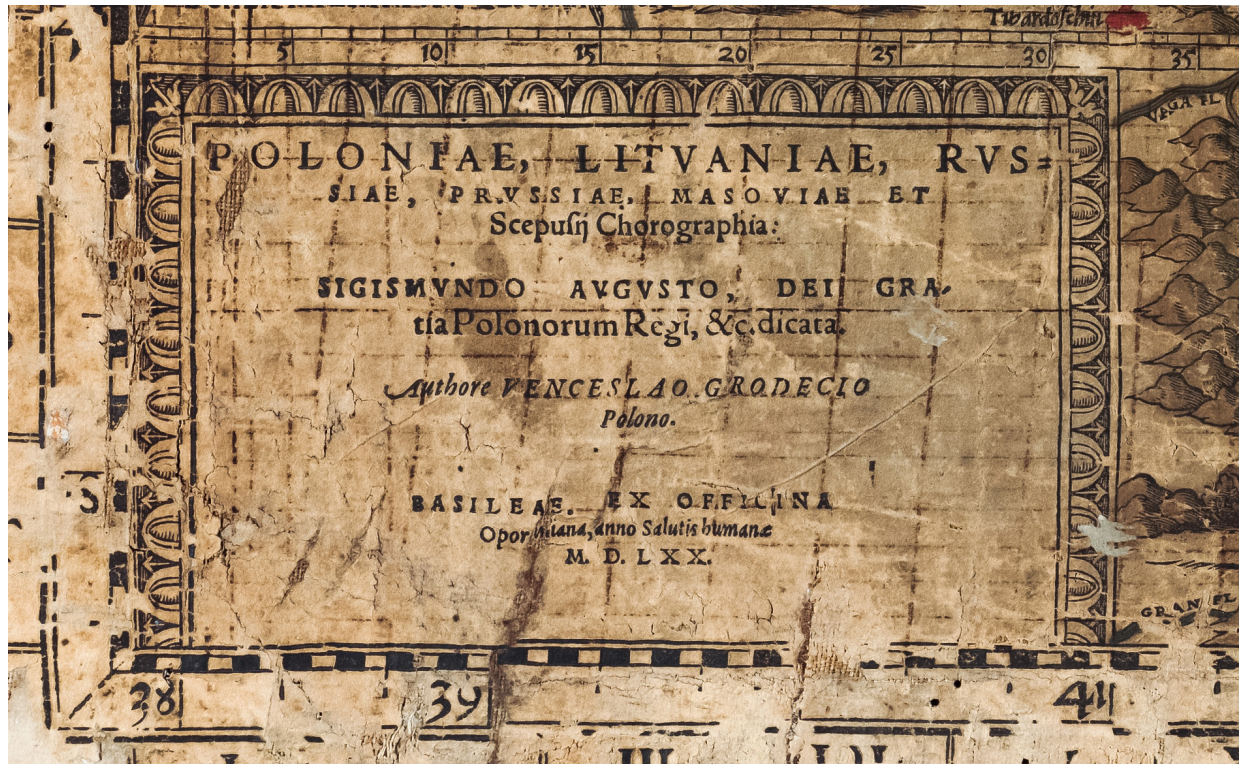 Twardoschin
5 10 15 20 25 30 35
VAGA FL
POLONIAE, LITVANIAE, RVS=
SIAE, PRVSSIAE, MASOVIAE ET
Scepusij Chorographia:
SIGISMVNDO AVGVSTO, DEI GRA-
tia Polonorum Regi, &c. dicata.
Authore VENCESLAO GRODECIO
Polono.
BASILEAE. EX OFFICINA
Oporiniana, anno Salutis humanæ
M. D. LXX.
GRAN FL
38 39 41